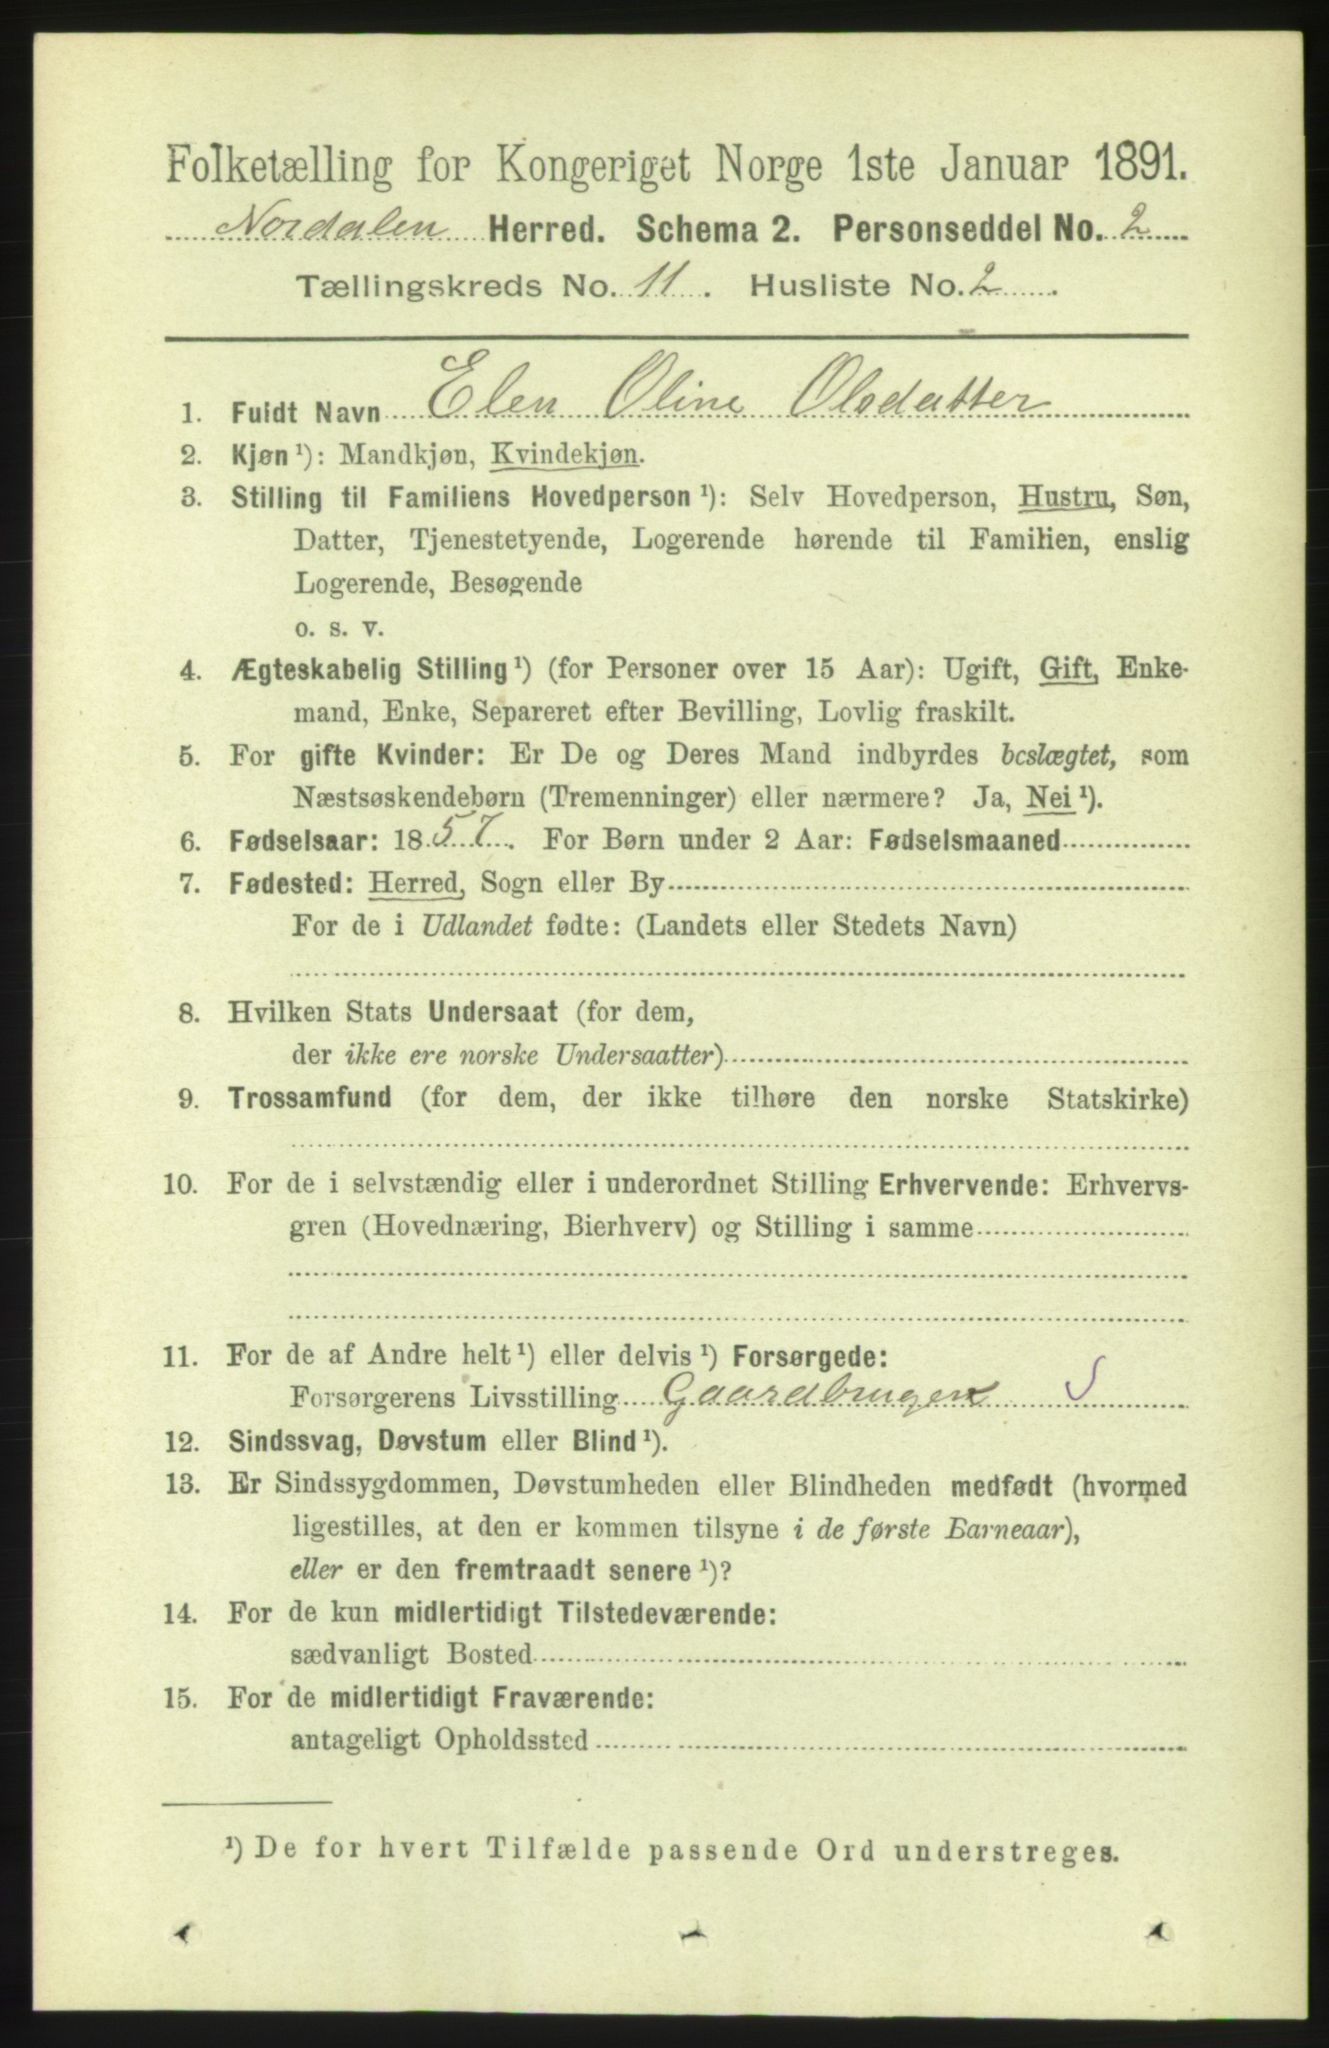 Folketælling for Kongeriget Norge 1ste Januar 1891.
Nordalen Herred. Schema 2. Personseddel No. 2
Tællingskreds No. 11. Husliste No. 2.
1. Fuldt Navn Elen Oline Olsdatter
2. Kjøn ¹): Mandkjøn, Kvindekjøn.
3. Stilling til Familiens Hovedperson ¹): Selv Hovedperson, Hustru, Søn,
Datter, Tjenestetyende, Logerende hørende til Familien, enslig
Logerende, Besøgende
o. s. v.
4. Ægteskabelig Stilling ¹) (for Personer over 15 Aar): Ugift, Gift, Enke-
mand, Enke, Separeret efter Bevilling, Lovlig fraskilt.
5. For gifte Kvinder: Er De og Deres Mand indbyrdes beslægtet, som
Næstsøskendebørn (Tremenninger) eller nærmere? Ja, Nei ¹).
6. Fødselsaar: 1857. For Børn under 2 Aar: Fødselsmaaned
7. Fødested: Herred, Sogn eller By
For de i Udlandet fødte: (Landets eller Stedets Navn)
8. Hvilken Stats Undersaat (for dem,
der ikke ere norske Undersaatter)
9. Trossamfund (for dem, der ikke tilhøre den norske Statskirke)
10. For de i selvstændig eller i underordnet Stilling Erhvervende: Erhvervs-
gren (Hovednæring, Bierhverv) og Stilling i samme
11. For de af Andre helt ¹) eller delvis ¹) Forsørgede:
Forsørgerens Livsstilling Gaardbruger S
12. Sindssvag, Døvstum eller Blind ¹).
13. Er Sindssygdommen, Døvstumheden eller Blindheden medfødt (hvormed
ligestilles, at den er kommen tilsyne i de første Barneaar),
eller er den fremtraadt senere ¹)?
14. For de kun midlertidigt Tilstedeværende:
sædvanligt Bosted
15. For de midlertidigt Fraværende:
antageligt Opholdssted
¹) De for hvert Tilfælde passende Ord understreges.